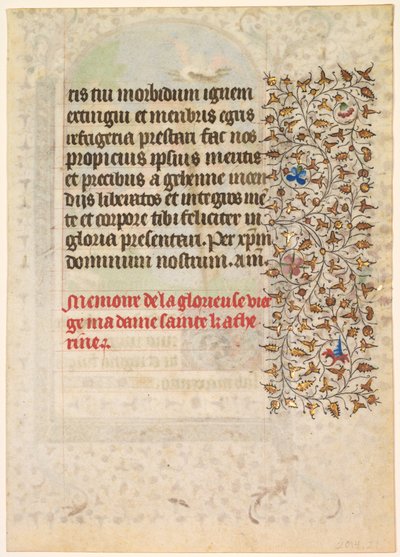 tis tui morbidum ignem
extingui et membris egris
refrigeria prestari fac nos
propicius ipsius meritis
et precibus a gehenne incen
diis liberatos et integros me
te et corpore tibi feliciter in
gloria presentari. Per xp̄m
dominum nostrum. Am̄.
Memoire de la glorieuse vier
ge madame sainte kathe
rine